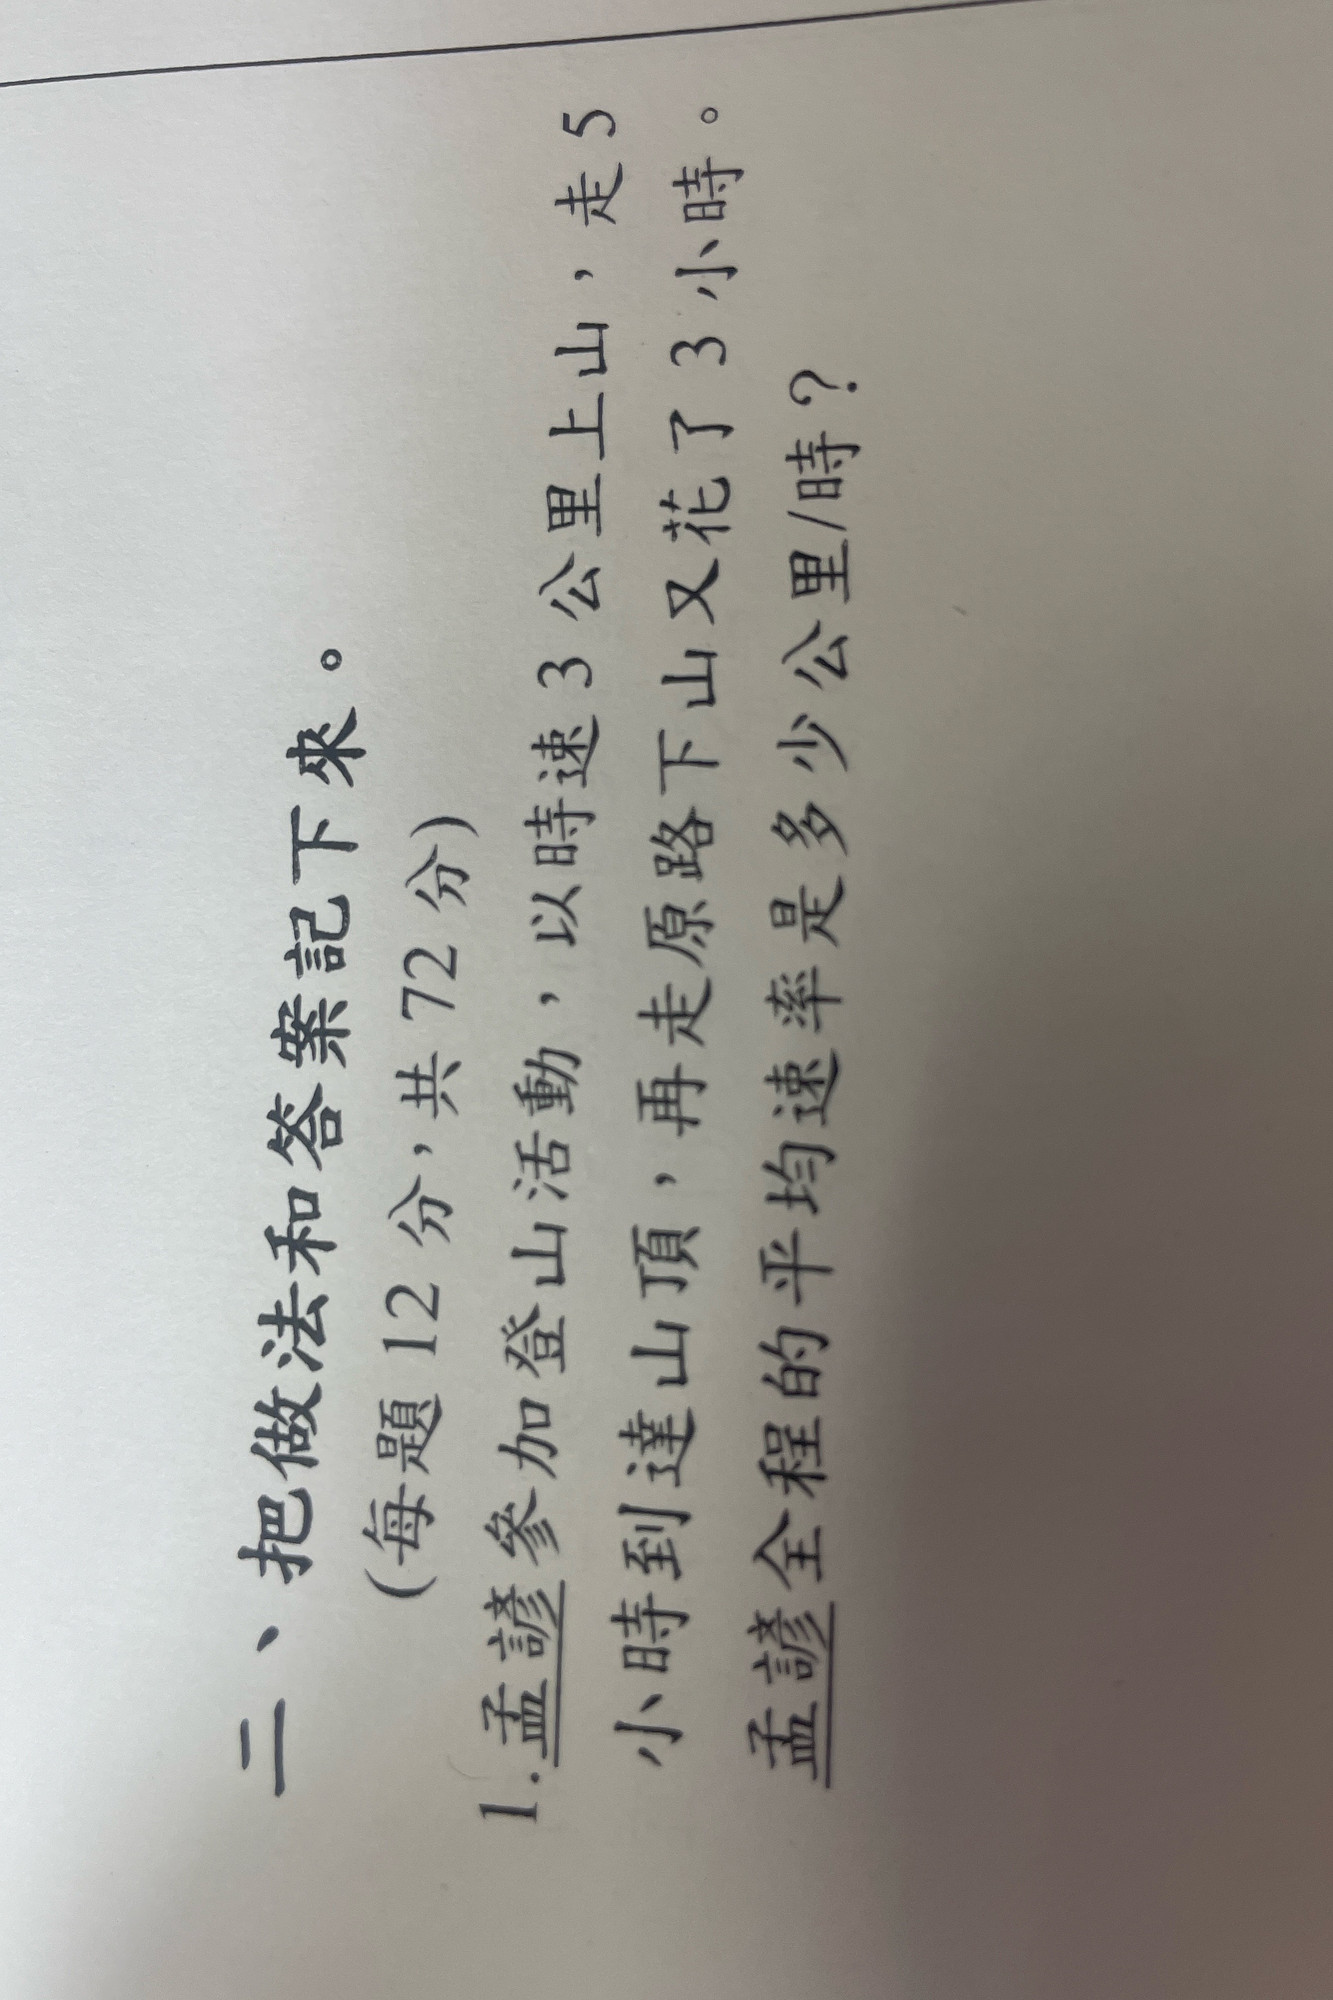 二、把做法和答案記下來。
(每題 12 分，共 72 分)
1.孟諺參加登山活動，以時速 3 公里上山，走 5
小時到達山頂，再走原路下山又花了 3 小時。
孟諺全程的平均速率是多少公里/時？